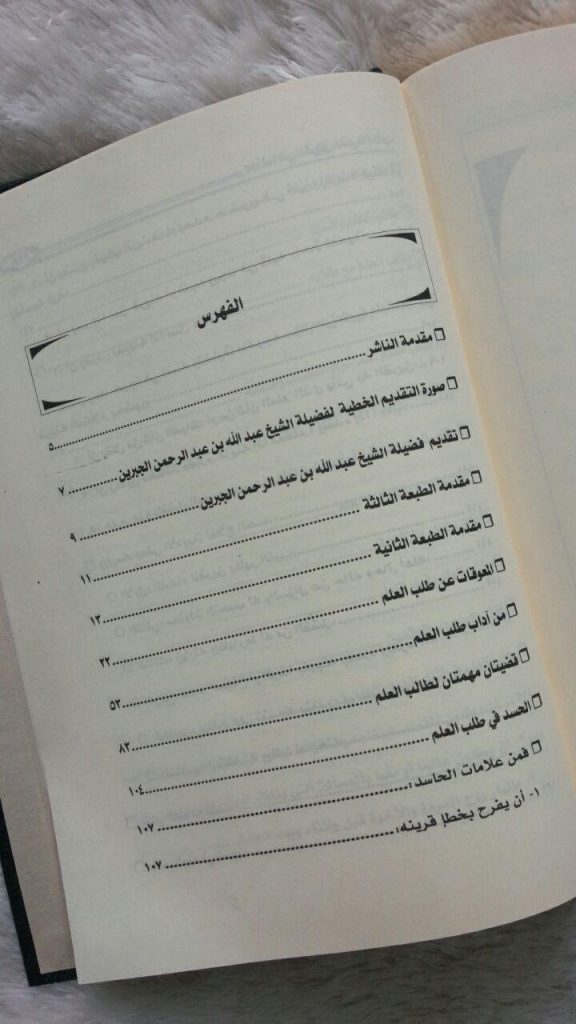 الفهرس
❒ مقدمة الناشر ................ ٥
❒ صورة التقديم الخطية لفضيلة الشيخ عبد الله بن عبد الرحمن الجبرين ................ ٧
❒ تقديم فضيلة الشيخ عبد الله بن عبد الرحمن الجبرين ................ ٩
❒ مقدمة الطبعة الثالثة ................ ١١
❒ مقدمة الطبعة الثانية ................ ١٣
❒ العوقات عن طلب العلم ................ ٢٢
❒ من آداب طلب العلم ................ ٥٢
❒ قضيتان مهمتان لطالب العلم ................ ٨٢
❒ الحسد في طلب العلم ................ ١٠٤
❒ فمن علامات الحاسد: ................ ١٠٧
١- أن يفرح بخطإ قرينه: ................ ١٠٧